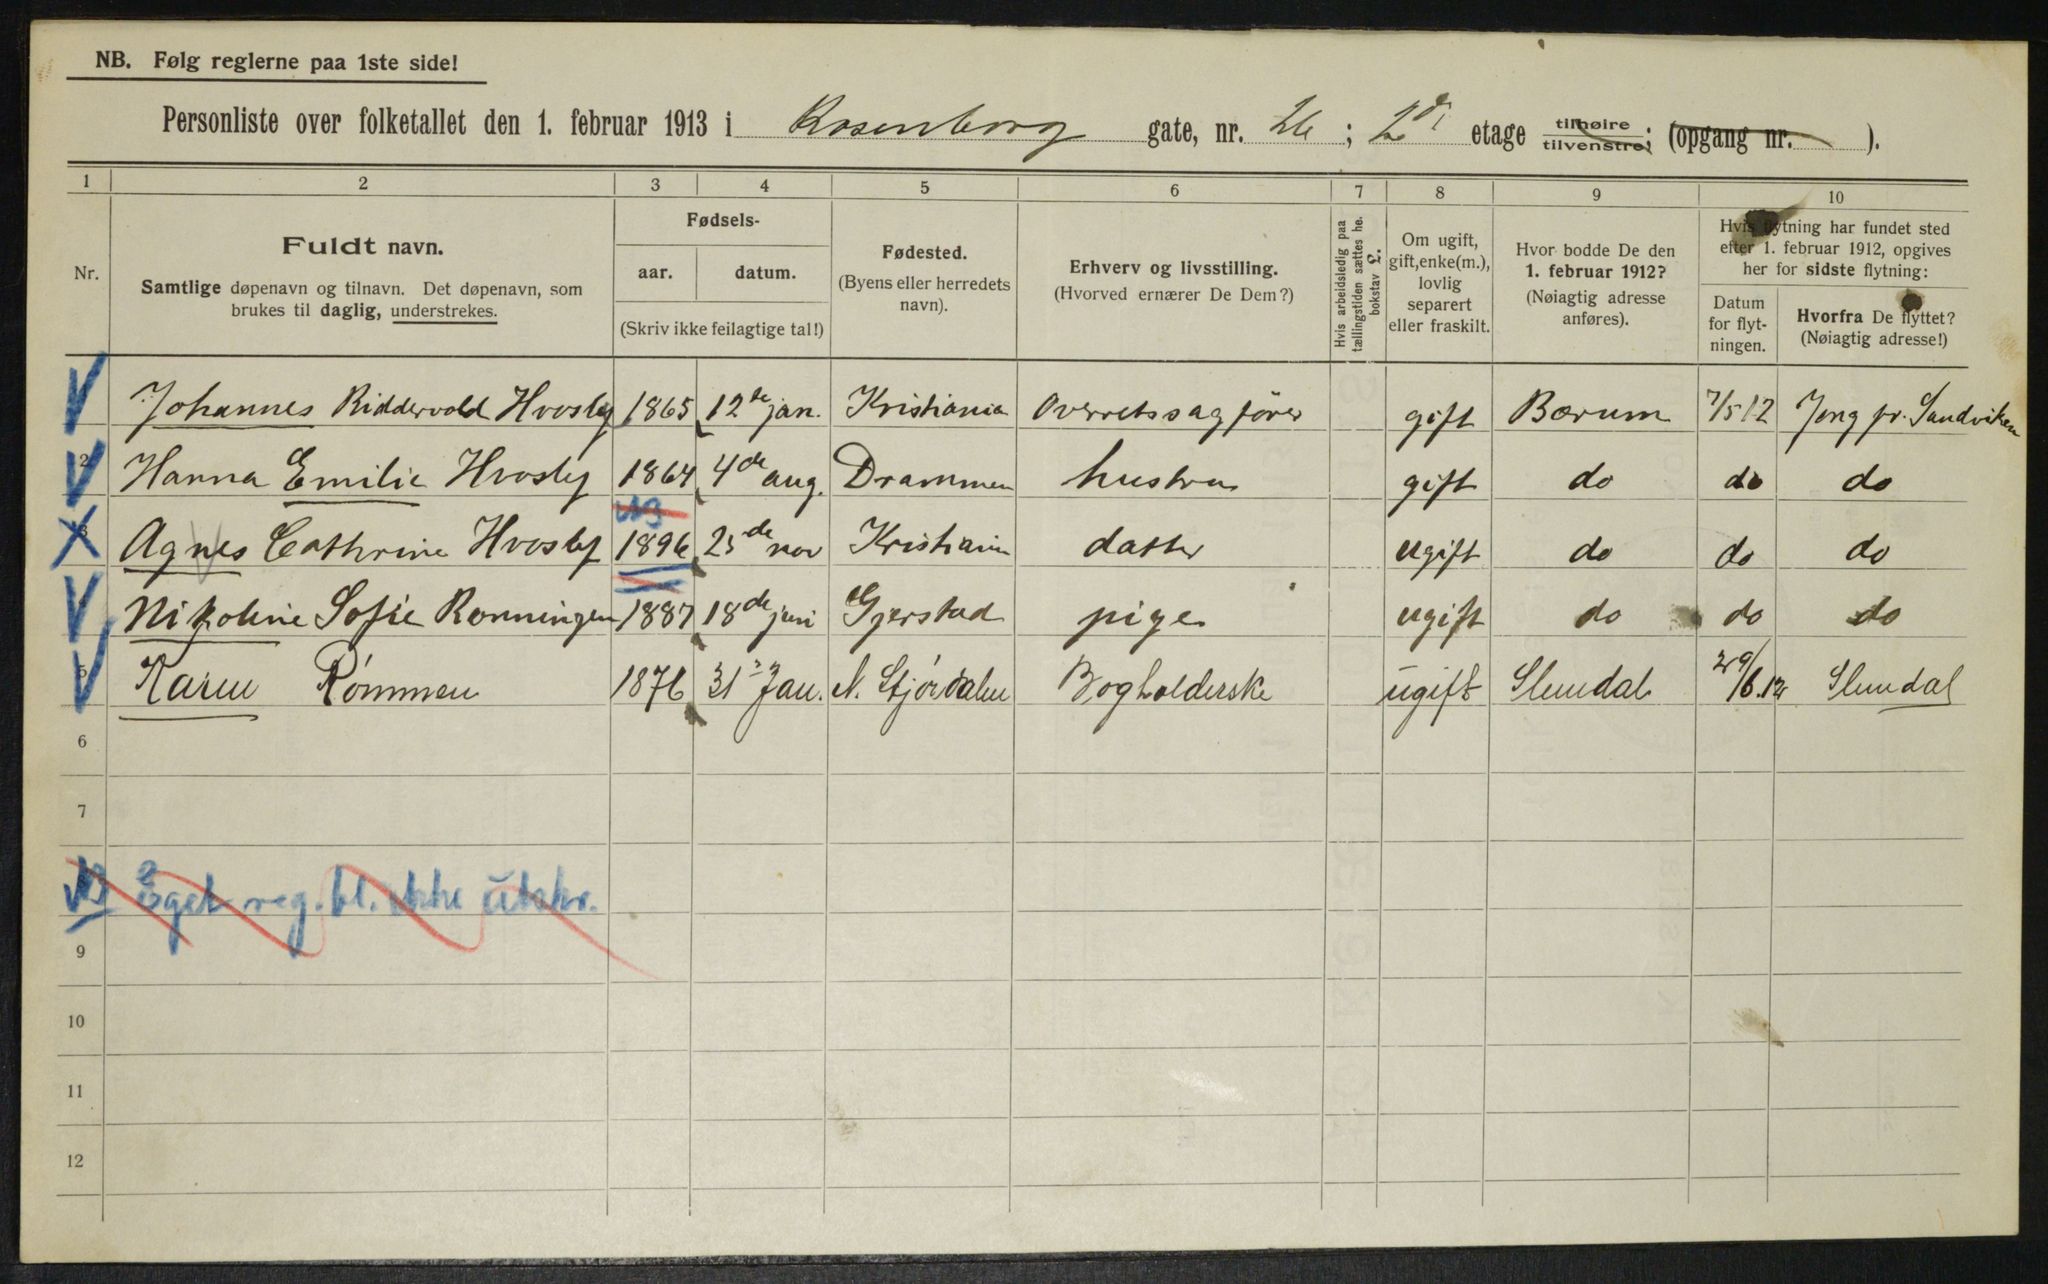 NB. Følg reglerne paa 1ste side!
Personliste over folketallet den 1. februar 1913 i Rosenborg gate, nr. 26; 2den etage tilhøire tilvenstre; (opgang nr. ).
1 2 3 4 5 6 7 8 9 10
Nr.
Fuldt navn.
Samtlige døpenavn og tilnavn. Det døpenavn, som
brukes til daglig, understrekes.
Fødsels-
aar. datum.
(Skriv ikke feilagtige tal!)
Fødested.
(Byens eller herredets
navn).
Erhverv og livsstilling.
(Hvorved ernærer De Dem?)
Hvis arbeidsledig paa
tællingstiden sættes he.
bokstav L.
Om ugift,
gift, enke(m.),
lovlig
separert
eller fraskilt.
Hvor bodde De den
1. februar 1912?
(Nøiagtig adresse
anføres).
Hvis flytning har fundet sted
efter 1. februar 1912, opgives
her for sidste flytning:
Datum
for flyt-
ningen.
Hvorfra De flyttet?
(Nøiagtig adresse!)
Johannes Riddervold Hvosley 1865 12te jan. Kristiania Overretssagfører gift Bærum 7/5 12 Jong pr. Sandviken
2 Hanna Emilie Hvosley 1864 4de aug. Drammen hustru gift do do do
NB
3 Agnes Cathrine Hvosley 1896 25de nov Kristiania datter ugift do do do
Nikoline Sofie Rønningen 1887 18de juni Gjerstad pige ugift do do do
5 Karen Rømmen 1876 31 Jan. N. Stjørdalen Bogholderske ugift Slemdal 29/6.12 Slemdal
6
7
NB Eget reg. bl. ikke utskr.
9
10
11
12